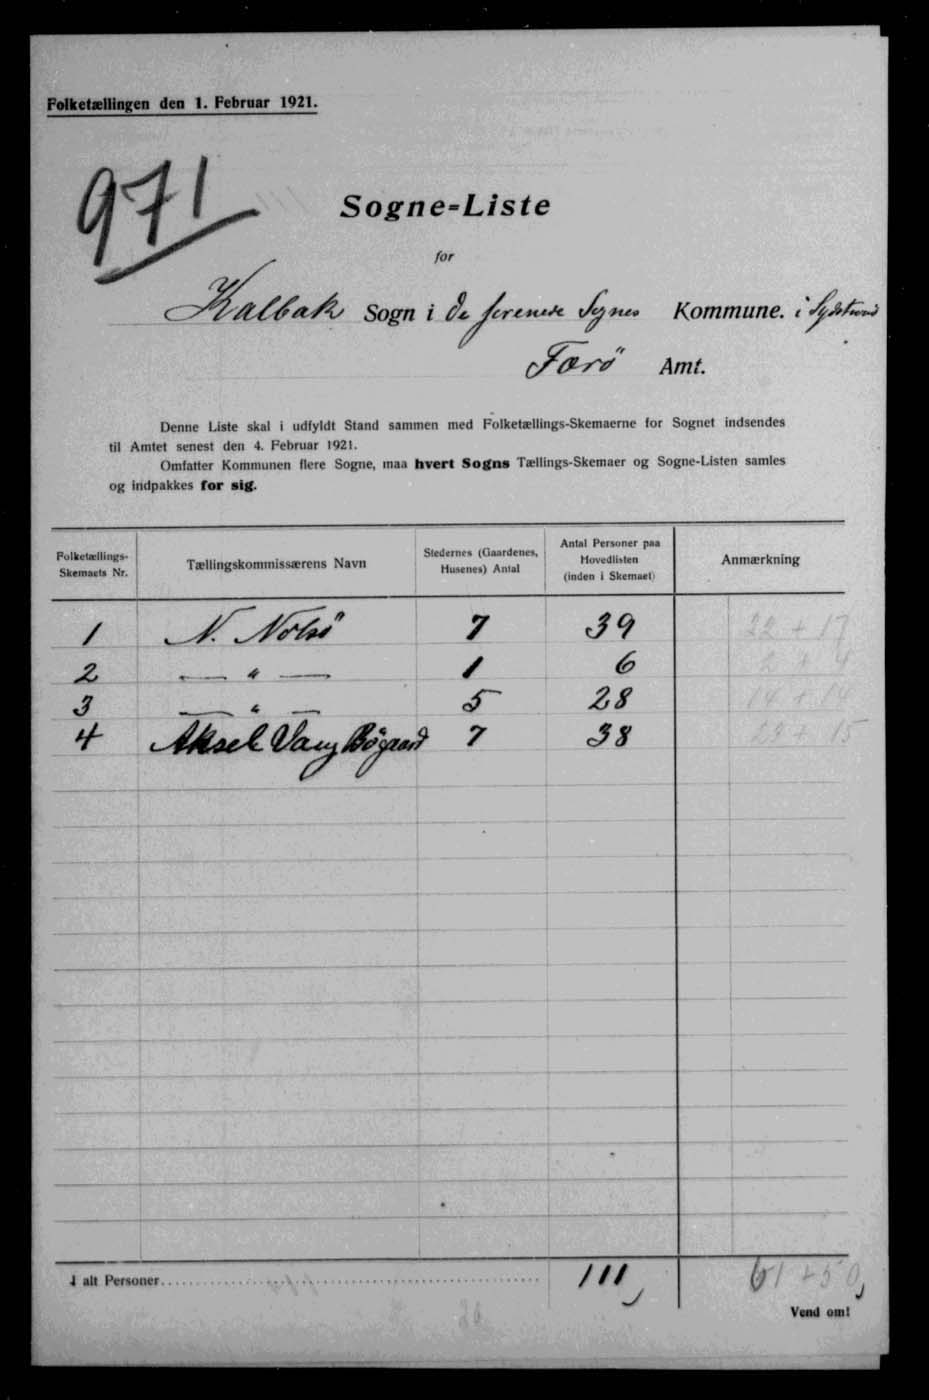 Folketællingen den 1. Februar 1921.
971
Sogne=Liste
for
Kalbak Sogn i De forenede Sognes Kommune. i Sydstrømø
Færø Amt.
Denne Liste skal i udfyldt Stand sammen med Folketællings-Skemaerne for Sognet indsendes
til Amtet senest den 4. Februar 1921.
Omfatter Kommunen flere Sogne, maa hvert Sogns Tællings-Skemaer og Sogne-Listen samles
og indpakkes for sig.
Folketællings-Skemaets Nr. Tællingskommissærens Navn Stedernes (Gaardenes, Husenes) Antal Antal Personer paa Hovedlisten (inden i Skemaet) Anmærkning
1 N. Nolsø 7 39 22 + 17
2 — " — 1 6 2 + 4
3 — " — 5 28 14 + 14
4 Aksel Vang Bøgaard 7 38 23 + 15
I alt Personer 111 61 + 50
Vend om!